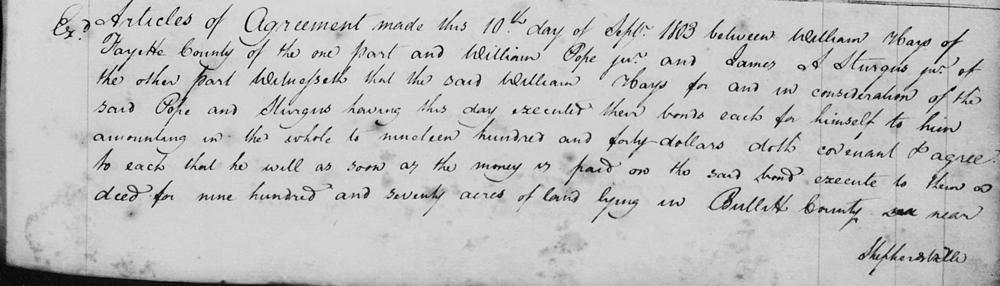 Exd. Articles of Agreement made this 10th day of Septr. 1803 between William Hays of
Fayette County of the one part and William Pope junr. and James A Sturgus junr. of
the other part Witnesseth that the said William Hays for and in consideration of the
said Pope and Sturgus having this day executed their bonds each for himself to him
amounting in the whole to nineteen hundred and forty dollars doth covenant & agree
to each that he will as soon as the money is paid on the said bond execute to them a
deed for nine hundred and seventy acres of land lying in Bullitt County near
Shepherdsville